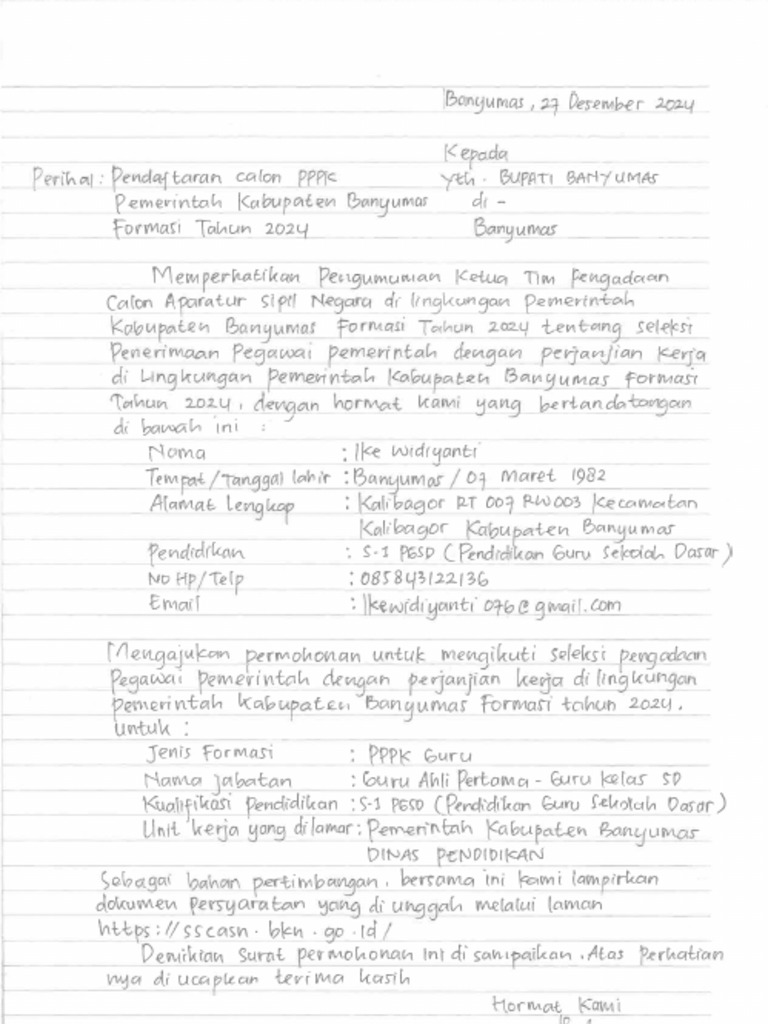 Banyumas, 27 Desember 2024
Kepada
Perihal : Pendaftaran calon PPPK Yth. BUPATI BANYUMAS
Pemerintah Kabupaten Banyumas di -
Formasi Tahun 2024 Banyumas
Memperhatikan Pengumuman Ketua Tim Pengadaan
Calon Aparatur Sipil Negara di lingkungan Pemerintah
Kabupaten Banyumas Formasi Tahun 2024 tentang seleksi
Penerimaan Pegawai pemerintah dengan perjanjian kerja
di Lingkungan Pemerintah Kabupaten Banyumas Formasi
Tahun 2024, dengan hormat kami yang bertandatangan
di bawah ini :
Nama : Ike Widiyanti
Tempat/Tanggal lahir : Banyumas / 07 Maret 1982
Alamat Lengkap : Kalibagor RT 007 RW 003 Kecamatan
Kalibagor Kabupaten Banyumas
Pendidikan : S-1 PGSD (Pendidikan Guru Sekolah Dasar)
NO HP/Telp : 085843122136
Email : Ikewidiyanti076@gmail.com
Mengajukan permohonan untuk mengikuti seleksi pengadaan
Pegawai pemerintah dengan perjanjian kerja di lingkungan
pemerintah Kabupaten Banyumas Formasi tahun 2024.
untuk :
Jenis Formasi : PPPK Guru
Nama jabatan : Guru Ahli Pertama - Guru Kelas SD
Kualifikasi Pendidikan : S-1 PGSD (Pendidikan Guru Sekolah Dasar)
Unit kerja yang dilamar : Pemerintah Kabupaten Banyumas
DINAS PENDIDIKAN
Sebagai bahan pertimbangan, bersama ini kami lampirkan
dokumen persyaratan yang di unggah melalui laman
https://sscasn.bkn.go.id/
Demikian surat permohonan ini di sampaikan. Atas perhatian
nya di ucapkan terima kasih
Hormat Kami